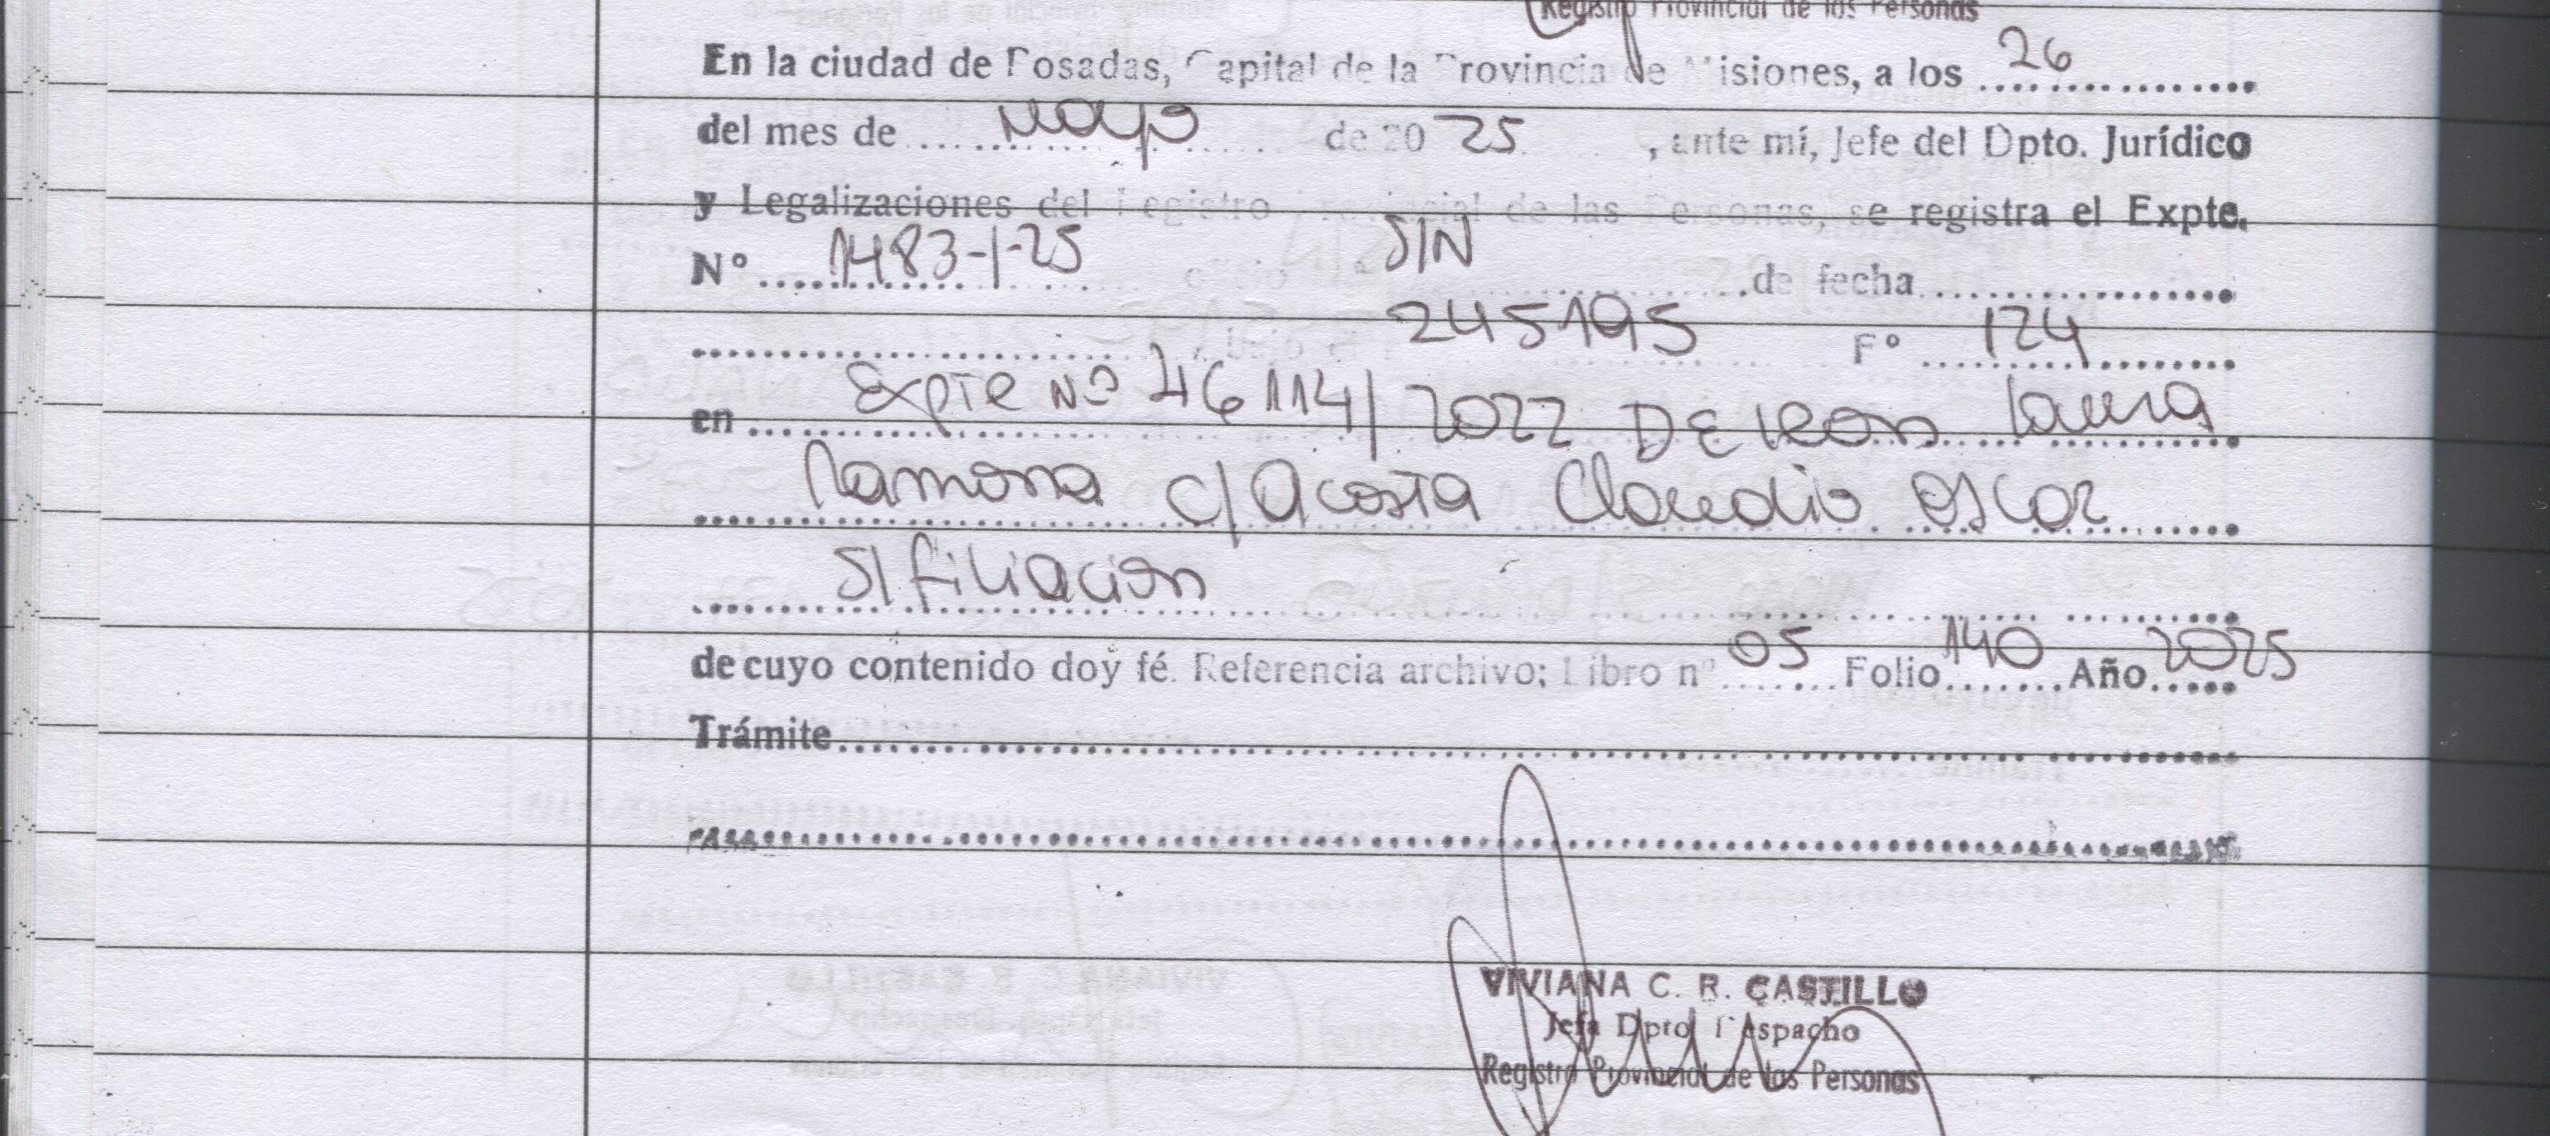 Registro Provincial de las Personas
En la ciudad de Posadas, Capital de la Provincia de Misiones, a los 26
del mes de mayo de 20 25 , ante mí, Jefe del Dpto. Jurídico
y Legalizaciones del Registro Provincial de las Personas, se registra el Expte.
N° 1483-1-25 oficio S/N de fecha
245195 F° 124
en Expte Nº 46114/2022 DE LEON Laura
Ramona c/ Acosta Claudio Oscar
S/ filiacion
de cuyo contenido doy fé. Referencia archivo; Libro nº 05 Folio 140 Año 2025
Trámite
VIVIANA C. R. CASTILLO
Jefa Dpto Despacho
Registro Provincial de las Personas